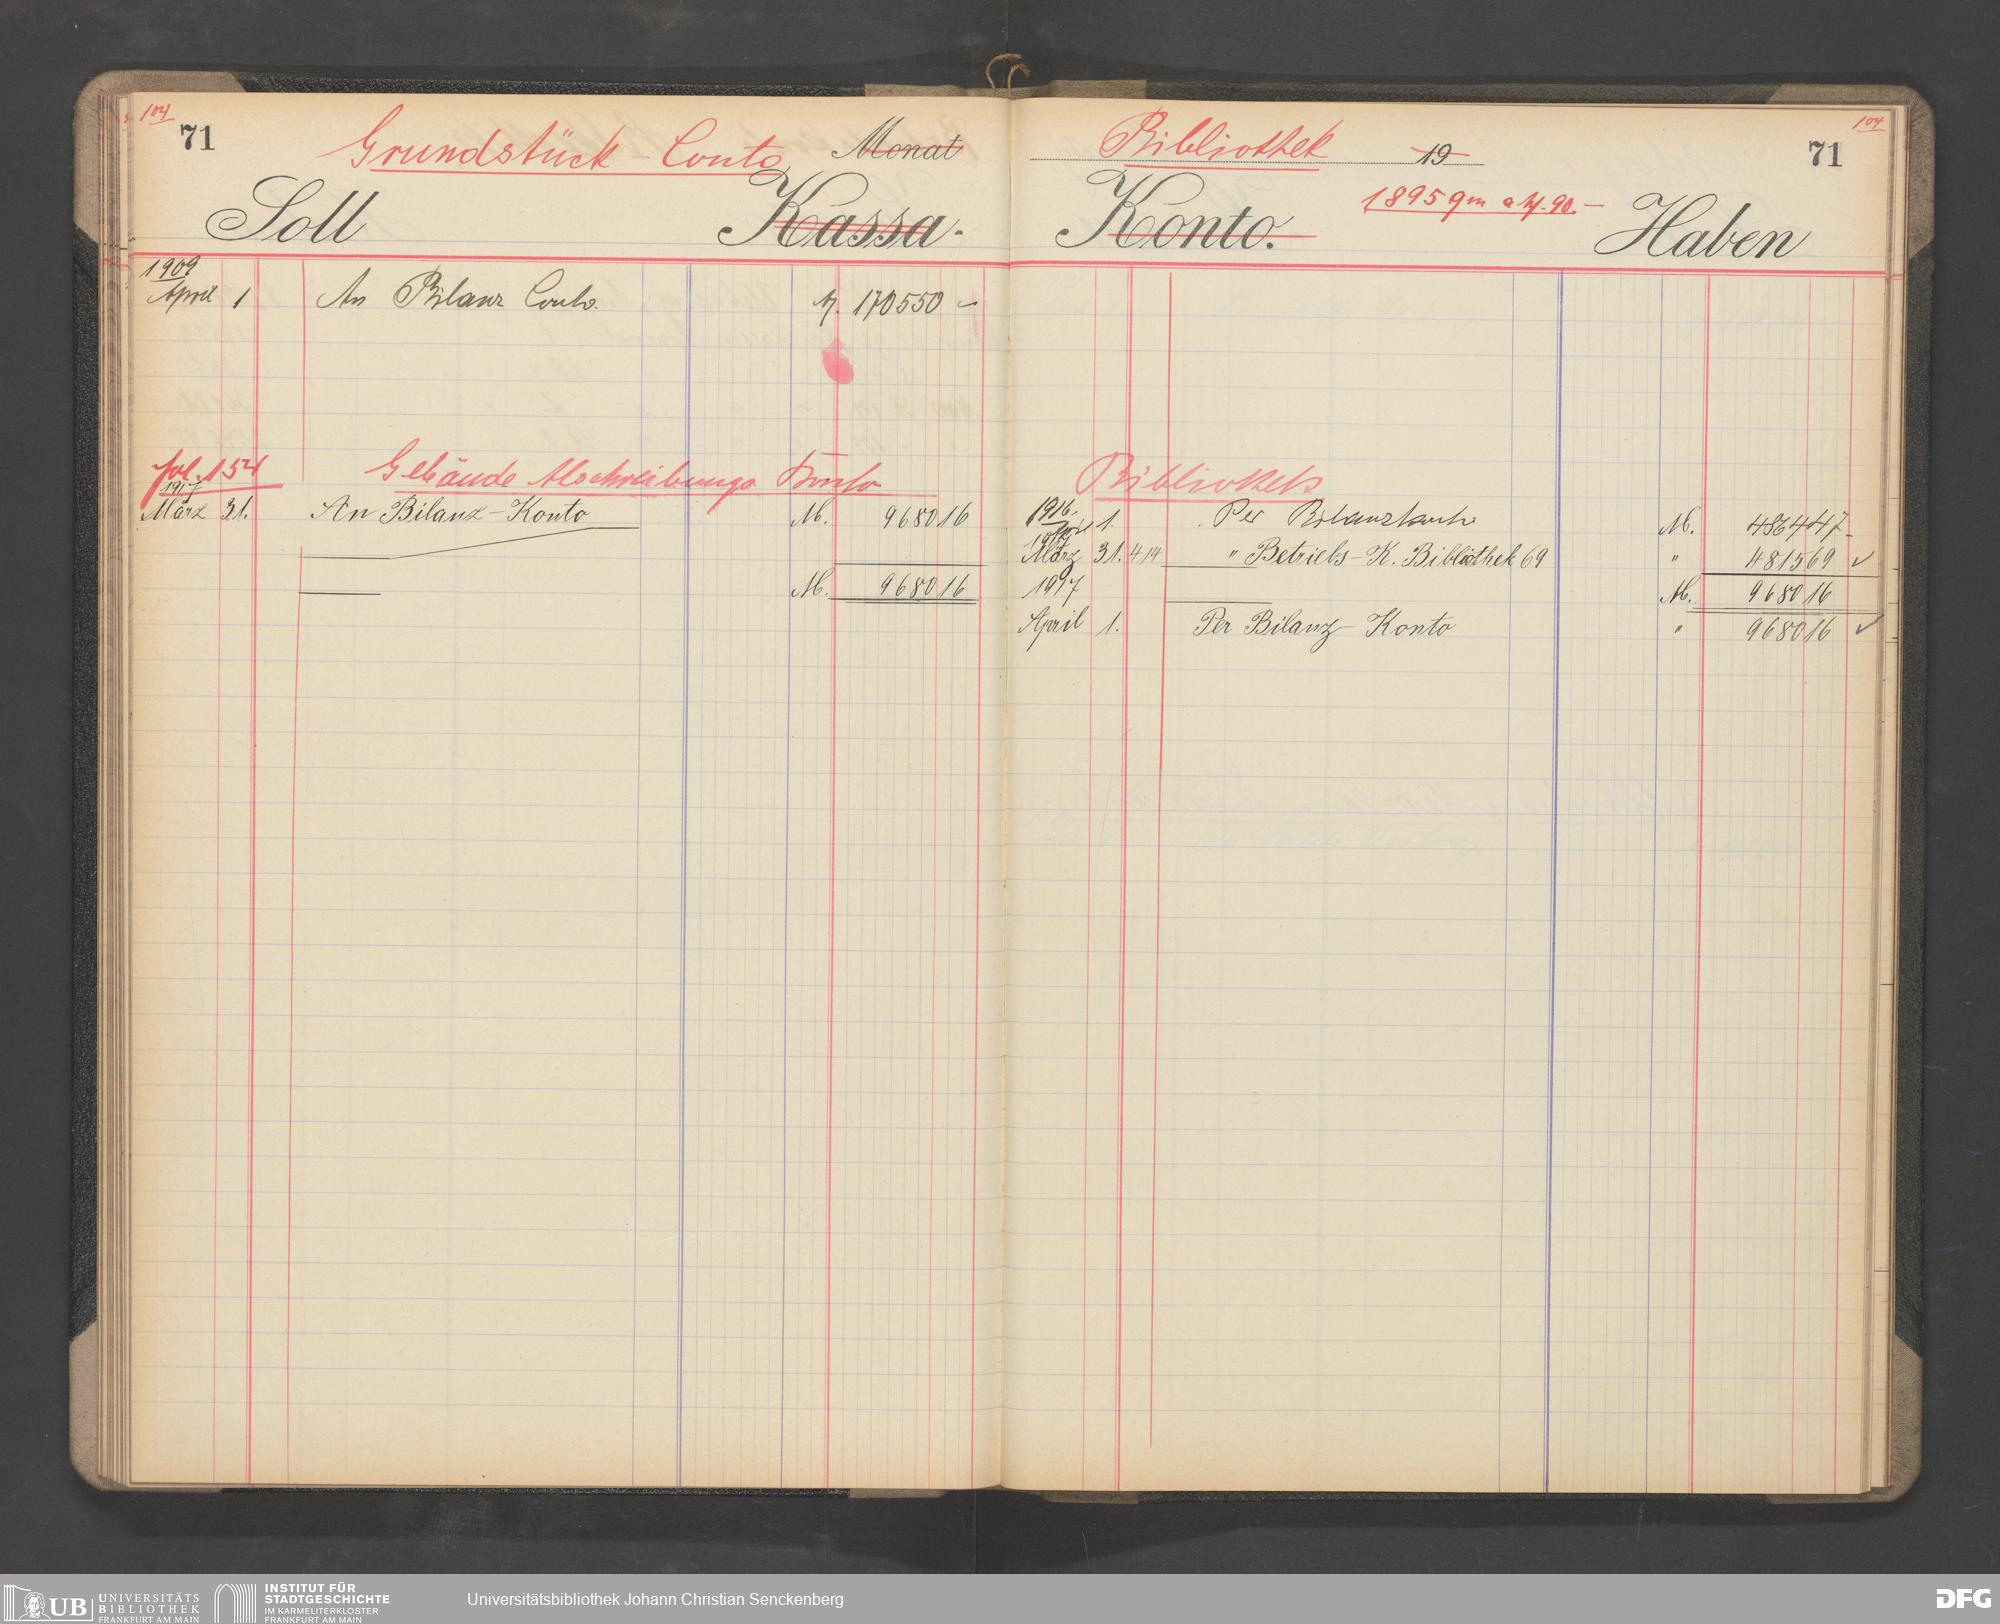 104
71
Grundstück-Conto
Monat
Soll
Kassa.
1909
April 1 An Bilanz Conto. M. 170550 –
fol. 154
Gebäude Abschreibungs Konto
1917
März 31. An Bilanz-Konto M. 9680 16
M. 9680 16
104
71
Bibliothek
19
1895 qm a M. 90.–
Konto.
Haben
Bibliothek
1916.
April 1. Per Bilanzkonto M. 4864 47
1917
März 31. 414 " Betriebs-K. Bibliothek 69 " 4815 69
1917 M. 9680 16
April 1. Per Bilanz-Konto " 9680 16
UB UNIVERSITÄTS
BIBLIOTHEK
FRANKFURT AM MAIN
INSTITUT FÜR
STADTGESCHICHTE
IM KARMELITERKLOSTER
FRANKFURT AM MAIN
Universitätsbibliothek Johann Christian Senckenberg
DFG